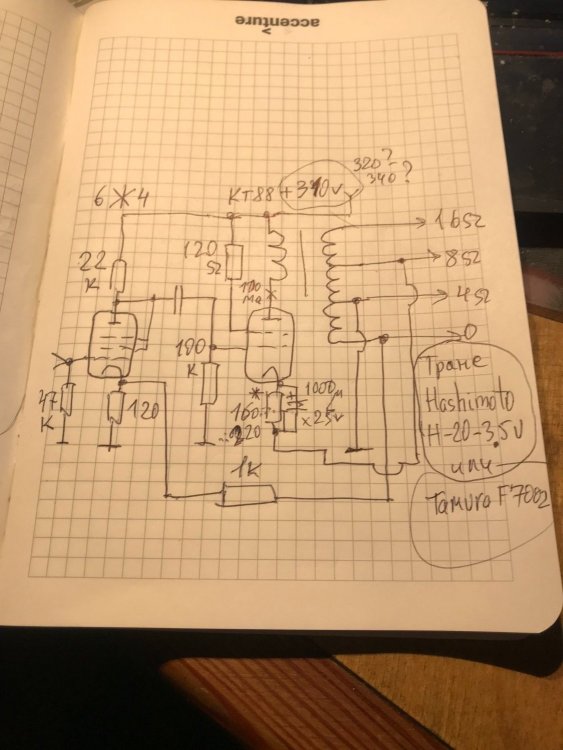 accenture
>
6Ж4
КТ88
+340v
320?
340?
16Ω
8Ω
4Ω
0
22
к
120
Ω
100
ма
100
к
47
к
120
*
160
÷220
1000м
x25v
1к
Транс
Hashimoto
H-20-3,5U
или
Tamura F7002